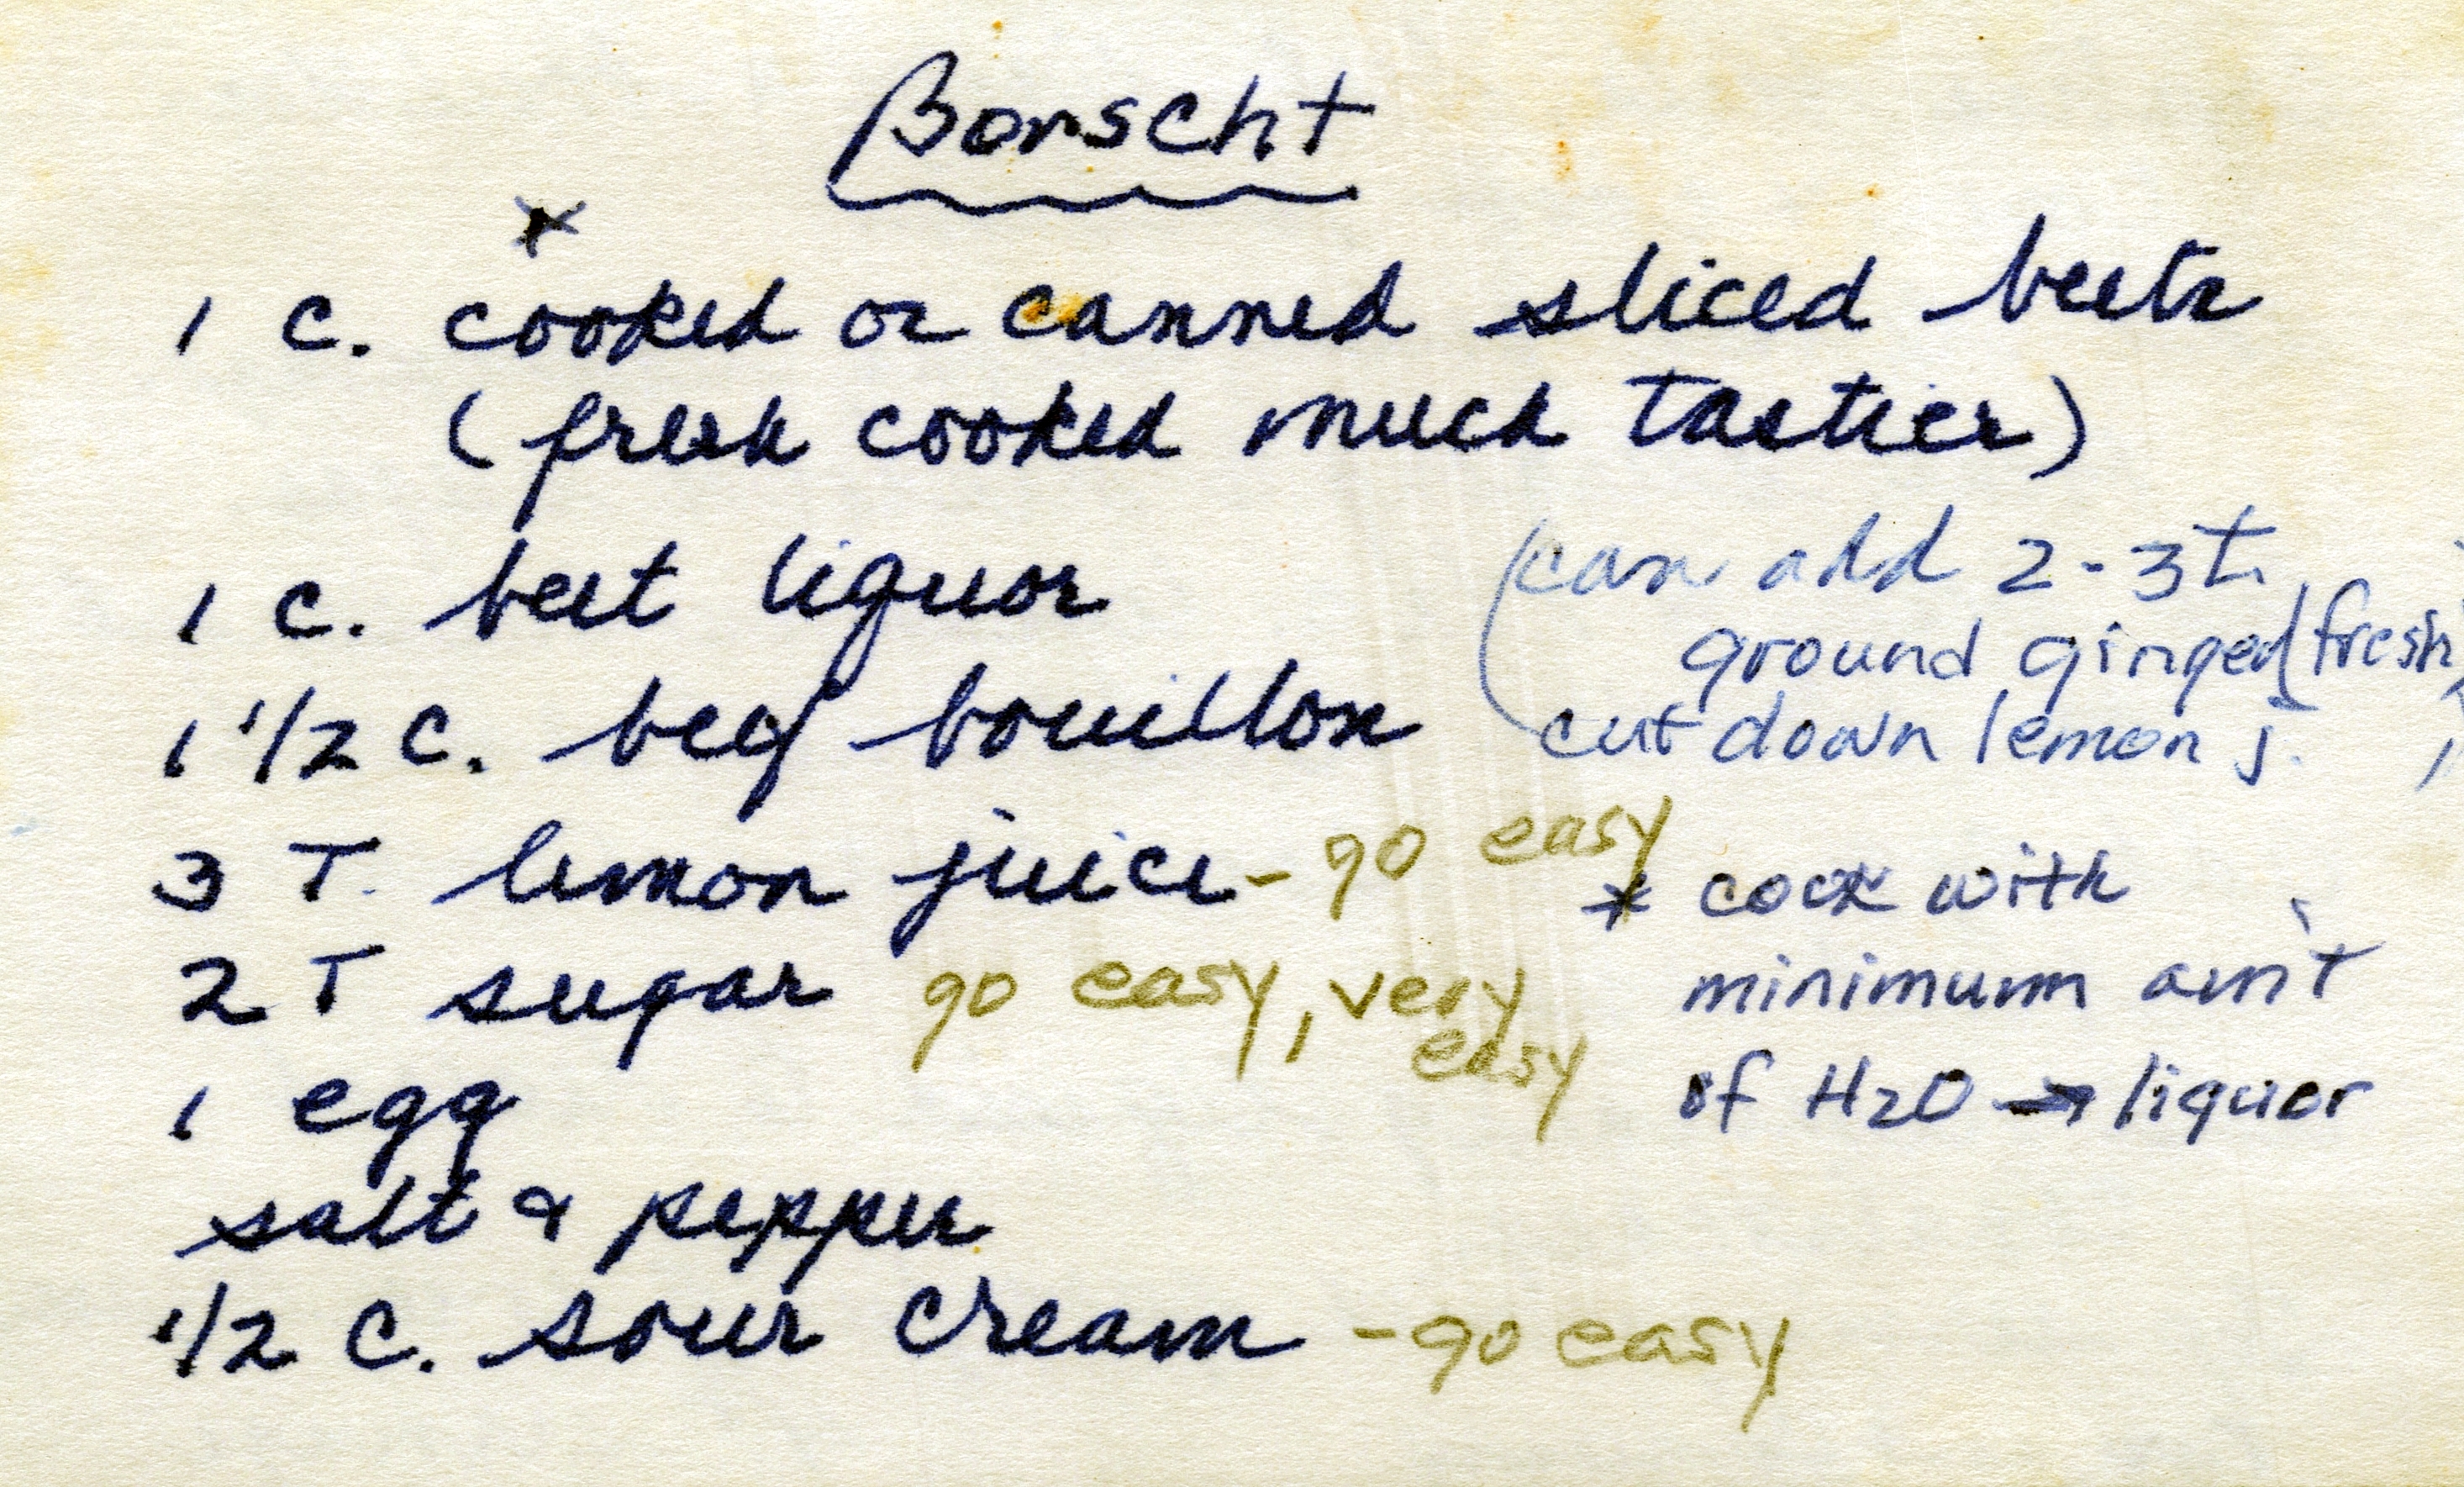 Borscht
*
1 C. cooked or canned sliced beets
(fresh cooked much tastier)
1 C. beet liquor
(can add 2-3 t.
ground ginger (fresh)
cut down lemon j. )
1 1/2 C. beef bouillon
3 T. lemon juice - go easy
2 T sugar go easy, very
easy
* cook with
minimum am't
of H2O → liquor
1 egg
salt & pepper
1/2 C. sour cream - go easy